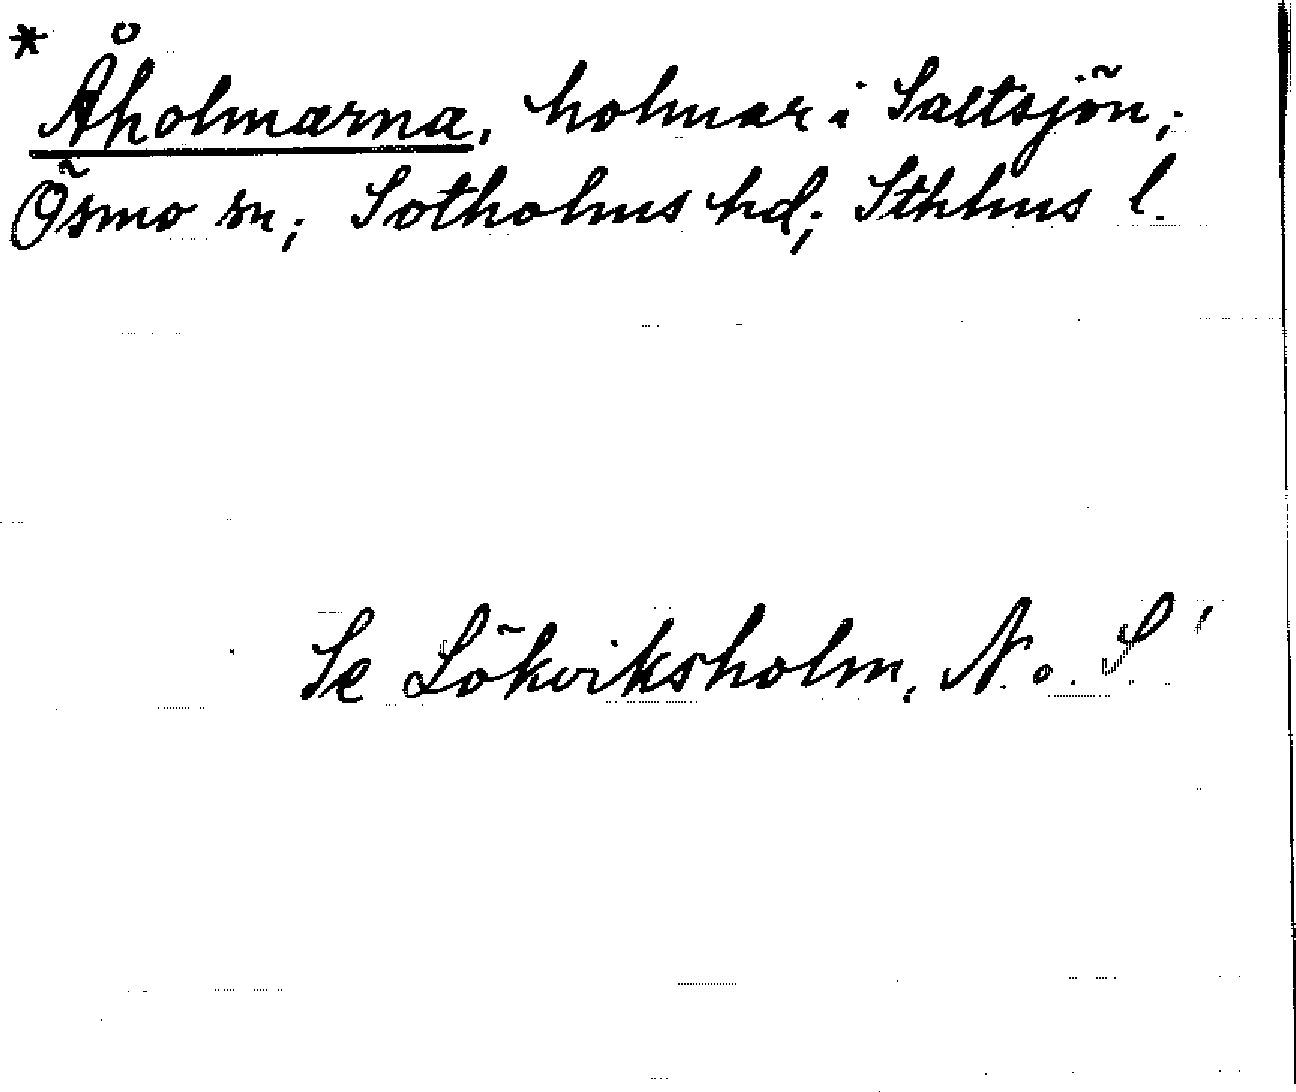 * Åholmarna, holmar i Saltsjön;
Ösmo sn; Sotholms hd; Sthlms l.
Se Lökviksholm, N. o. S!